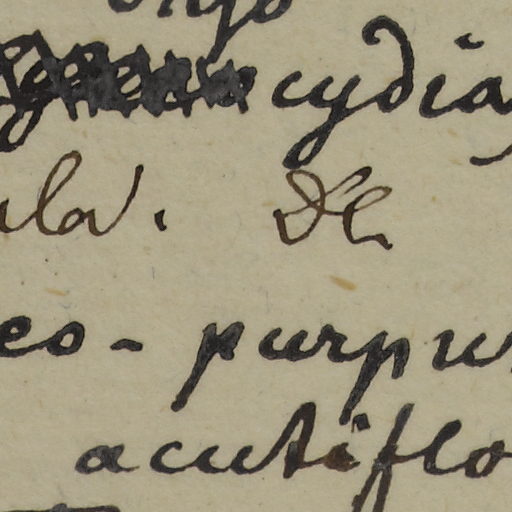 cydia,
ula. De
eo-purpur
acutiflo